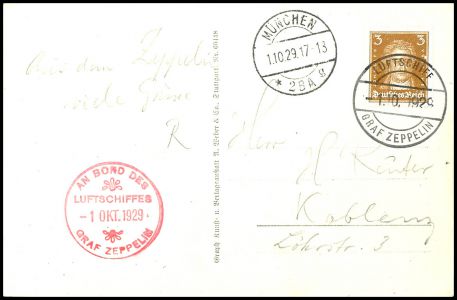 Aus dem Zeppelin
viele Grüsse
R
AN BORD DES
LUFTSCHIFFES
-1 OKT. 1929
GRAF ZEPPELIN
Graph. Kunst- u. Verlagsanstalt A. Weber & Co., Stuttgart No. 60148
MÜNCHEN
1.10.29.17-18
* 2BA g
3 3
Deutsches Reich
LUFTSCHIFF
-1.0.1929
GRAF ZEPPELIN
Herrn
H. Reuter
Koblenz
Löhrstr. 3